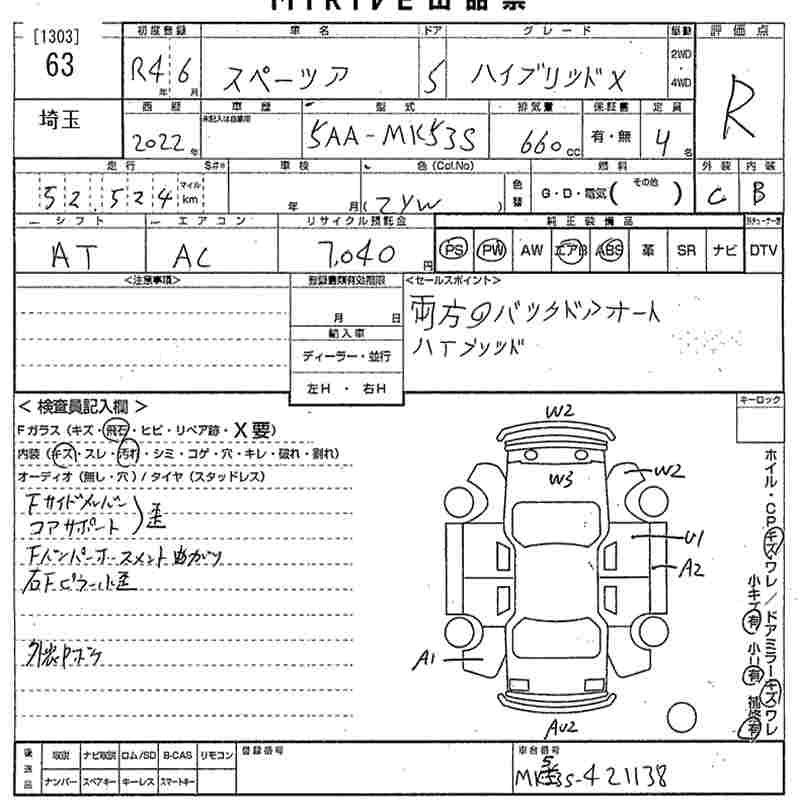 MIRIVE出品票
[1303]
63
初度登録 車名 ドア グレード 駆動 評価点
R4年6月 スペーシア 5 ハイブリッドX 2WD・4WD R
埼玉
西暦 車歴 型式 排気量 保証書 定員
未記入は自家用
2022年 5AA-MK53S 660cc 有・無 4名
走行 S#® 車検 色(Col.No) 燃料 外装 内装
52,524 マイル km 年 月 (ZYW) 色替 G・D・電気(その他) C B
シフト エアコン リサイクル預託金 純正装備品
AT AC 7,040円 PS PW AW エアB ABS 革 SR ナビ DTV
<注意事項> 登録書類有効期限 <セールスポイント>
月 日 両方のバックドアオート
輸入車 ハイブリッド
ディーラー・並行
左H・右H
<検査員記入欄> キーロック
Fガラス(キズ・飛石・ヒビ・リペア跡・X要)
内装(キズ・スレ・汚れ・シミ・コゲ・穴・キレ・破れ・割れ)
オーディオ(無し・穴)/タイヤ(スタッドレス)
Fサイドメンバー
コアサポート)歪
Fバンパーホースメント曲がり
右Fピラー小歪
外装Pスレ
W2
W3
W2
U1
A2
A1
AU2
ホイル・CPキズ・ワレ/ドアミラーキズワレ
小キズ有 小凹有 補修有
後送品 取説 ナビ取説 ロム/SD B-CAS リモコン 登録番号 車台番号
ナンバー スペアキー キーレス スマートキー MK53S-421138